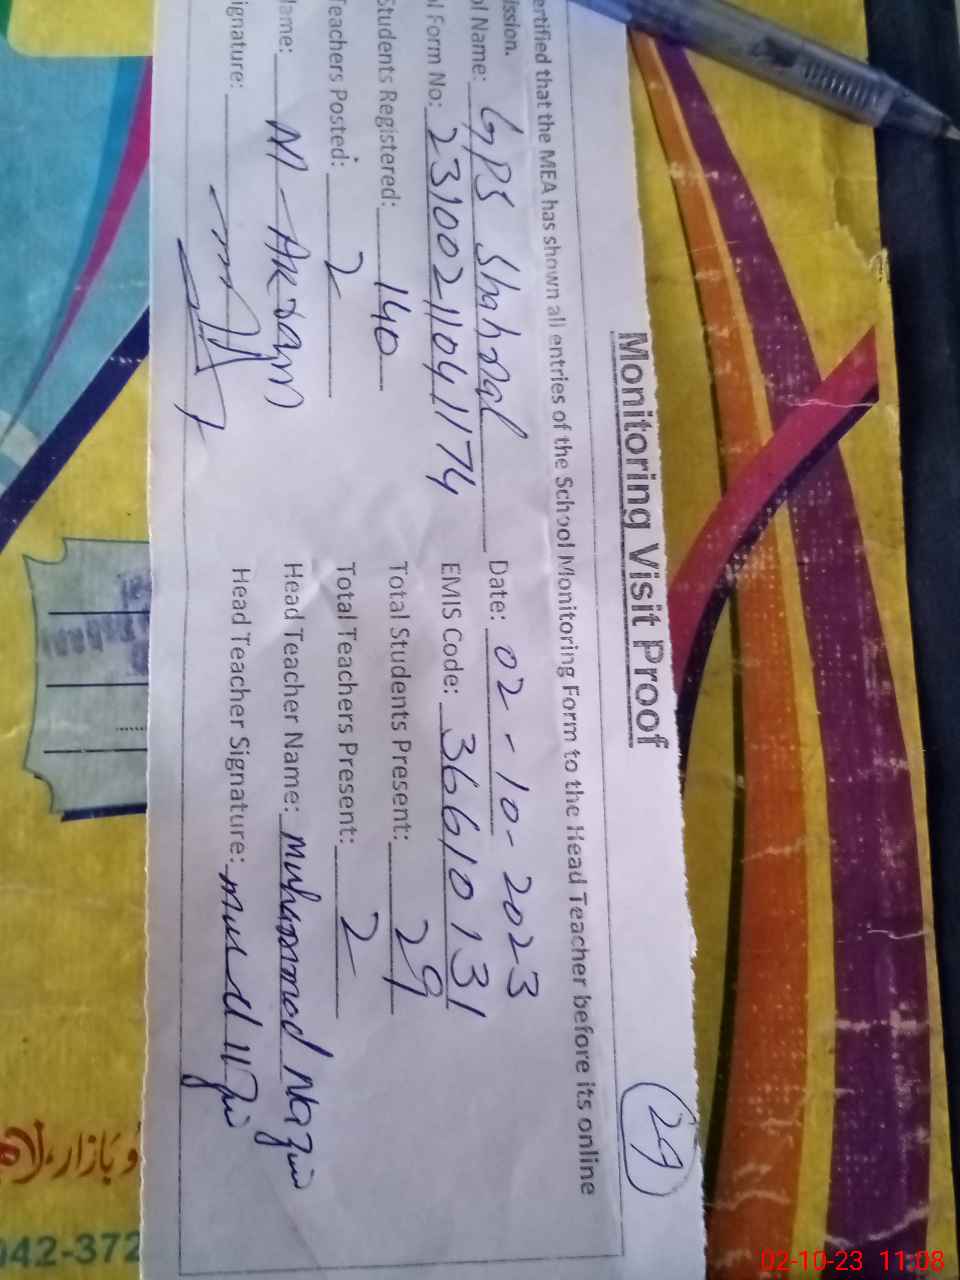 Monitoring Visit Proof
29
ertified that the MEA has shown all entries of the School Monitoring Form to the Head Teacher before its online
ission.
ol Name: GPS Shahnal Date: 02-10-2023
ol Form No: 23100211041174 EMIS Code: 36610131
Students Registered: 140 Total Students Present: 29
Teachers Posted: 2 Total Teachers Present: 2
Name: M-Akram Head Teacher Name: Muhammad Nazim
ignature: Head Teacher Signature:
و بازار، لاہو
042-372
02-10-23 11:08